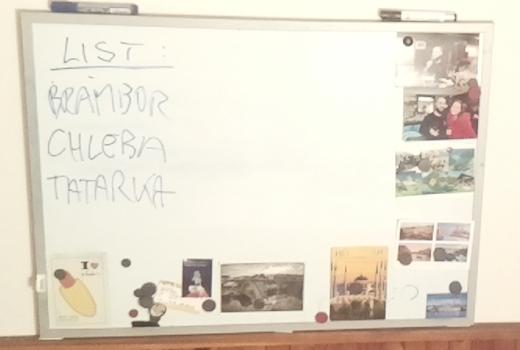 LIST:
BRAMBOR
CHLEBA
TATARKA
I